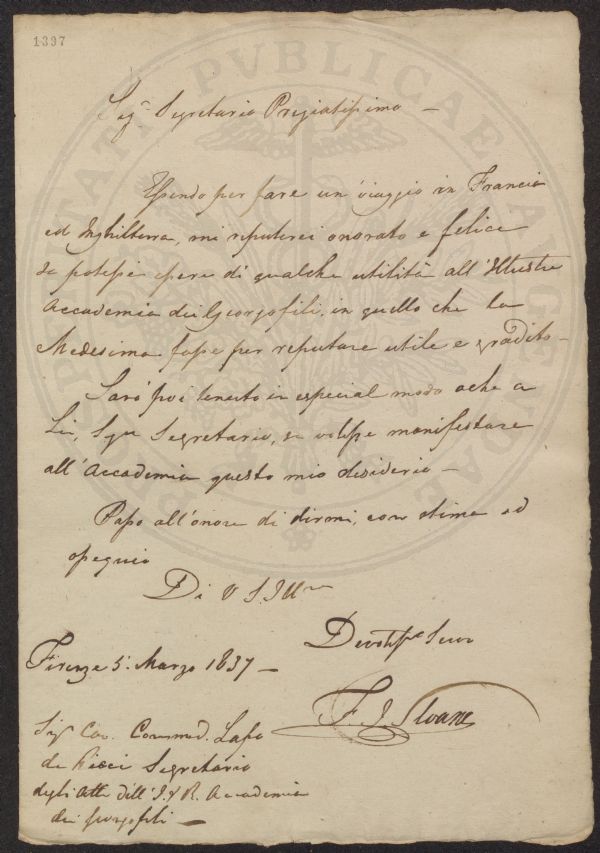 1397
PROSPERITATI PVBLICAE AVGENDAE
Sig.r Segretario Pregiatissimo —
Essendo per fare un viaggio in Francia
ed Inghilterra, mi reputerei onorato e felice
se potessi essere di qualche utilità all'Illustre
Accademia dei Georgofili, in quello che la
Medesima fosse per reputare utile e gradito —
Sarò poi tenuto in especial modo anche a
Lei, Sigr Segretario, se volesse manifestare
all'Accademia questo mio desiderio —
Passo all'onore di dirmi, con stima ed
ossequio
Di V S. Ill.ma
Devotis.o Servo
Firenze 5. Marzo 1837 —
F. J. Sloane
Sig.r Cav. Commed. Lapo
de Ricci Segretario
degli Atti dell'I. e R. Accademia
dei Georgofili —